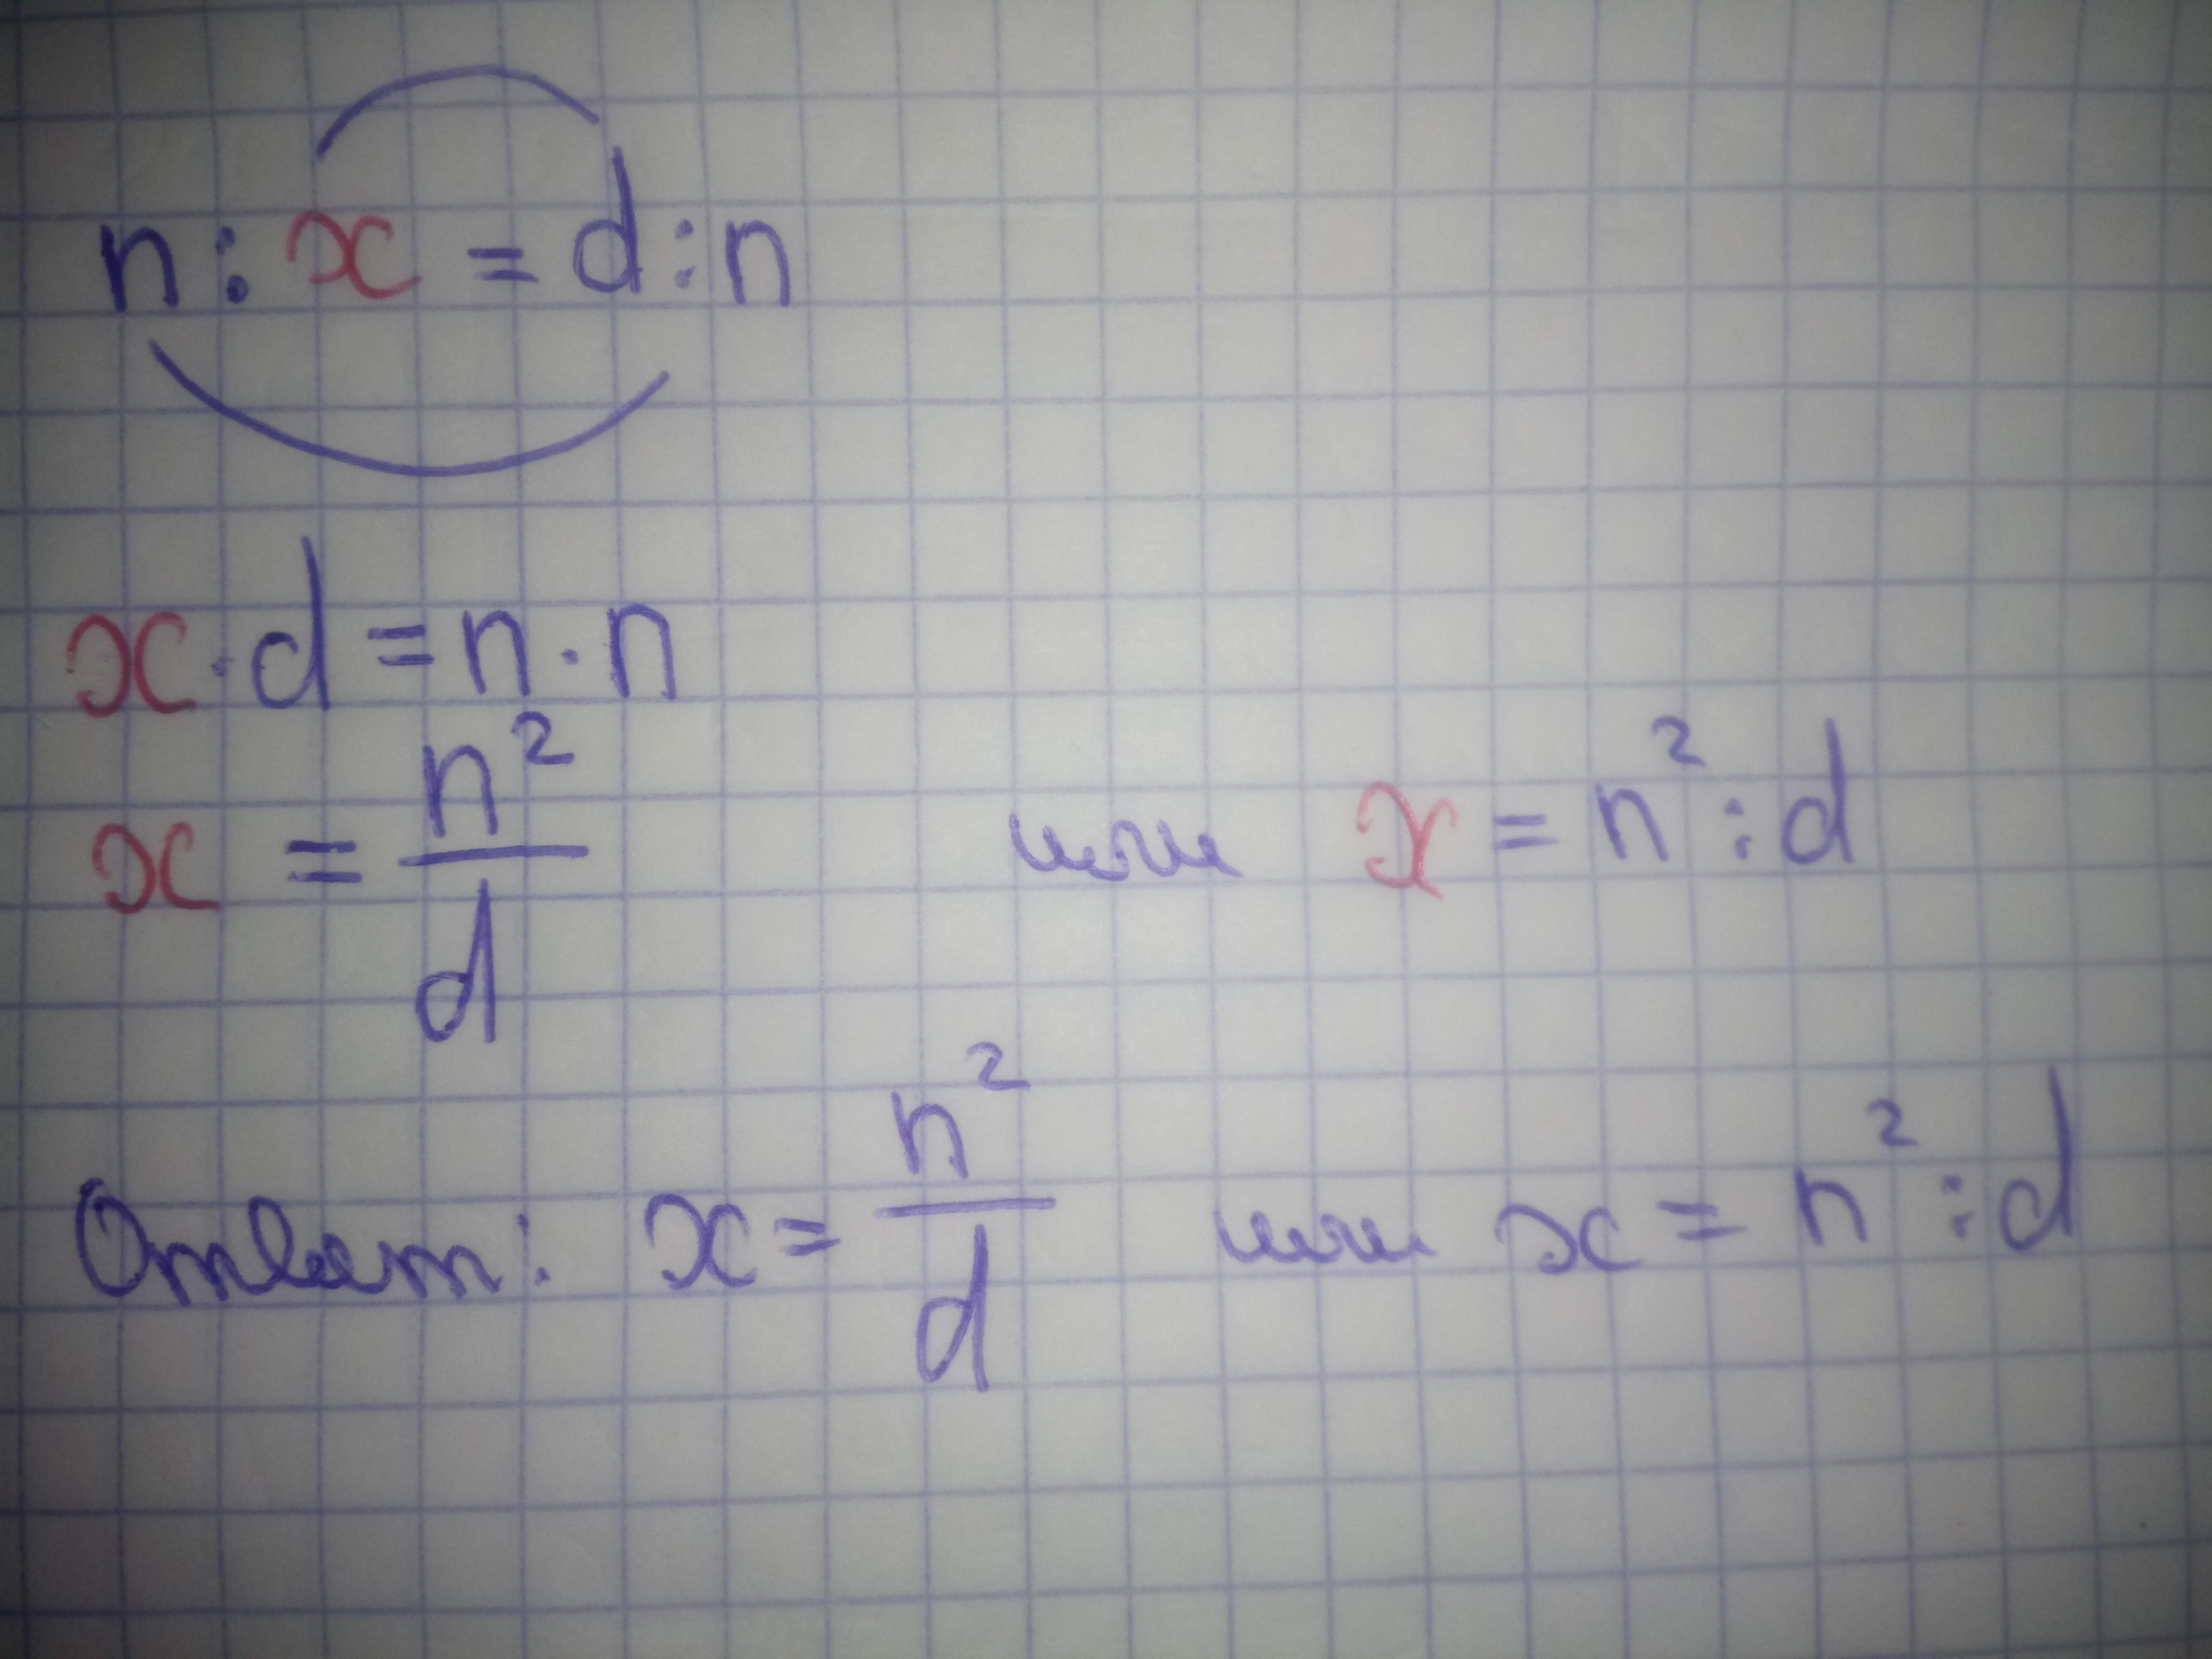 n : x = d : n
x · d = n · n
x = n²/d или x = n² : d
Ответ: x = n²/d или x = n² : d